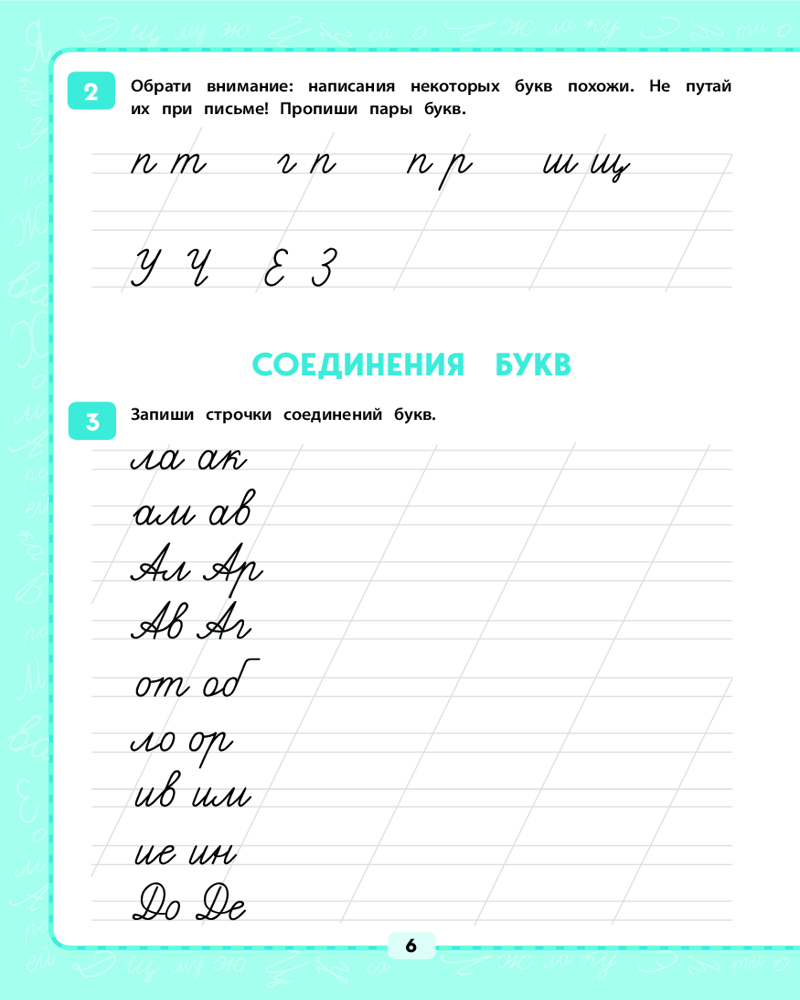 2
Обрати внимание: написания некоторых букв похожи. Не путай
их при письме! Пропиши пары букв.
п т г п п р ш щ
У Ч Е З
СОЕДИНЕНИЯ БУКВ
3
Запиши строчки соединений букв.
ла ак
ам ав
Ал Ар
Ав Аг
от об
ло ор
ив им
ие ин
До Де
6